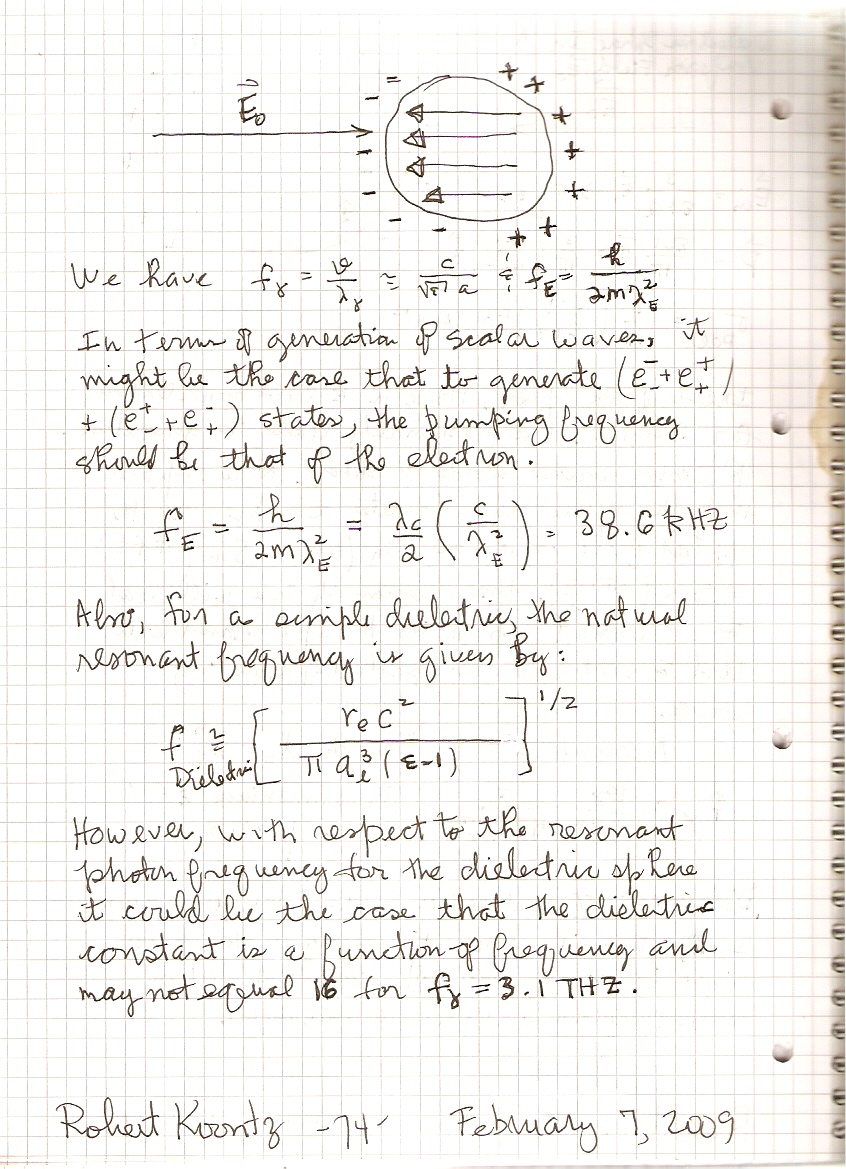 E₀
We have f_γ = v/λ_γ ≅ c/(√ε a) & f_E = h/(2mλ_E²)
In terms of generation of scalar waves, it
might be the case that to generate (e⁻₋ + e⁺₊)
+ (e⁺₋ + e⁻₊) states, the pumping frequency
should be that of the electron.
f_E = h/(2mλ_E²) = λc/2 (c/λ_E²) = 38.6 kHZ
Also, for a simple dielectric, the natural
resonant frequency is given by:
f Dielectric ≅ [r_e c²/(π a_l³ (ε-1))]^1/2
However, with respect to the resonant
photon frequency for the dielectric sphere
it could be the case that the dielectric
constant is a function of frequency and
may not equal 16 for f_γ = 3.1 THZ.
Robert Koontz -74- February 7, 2009